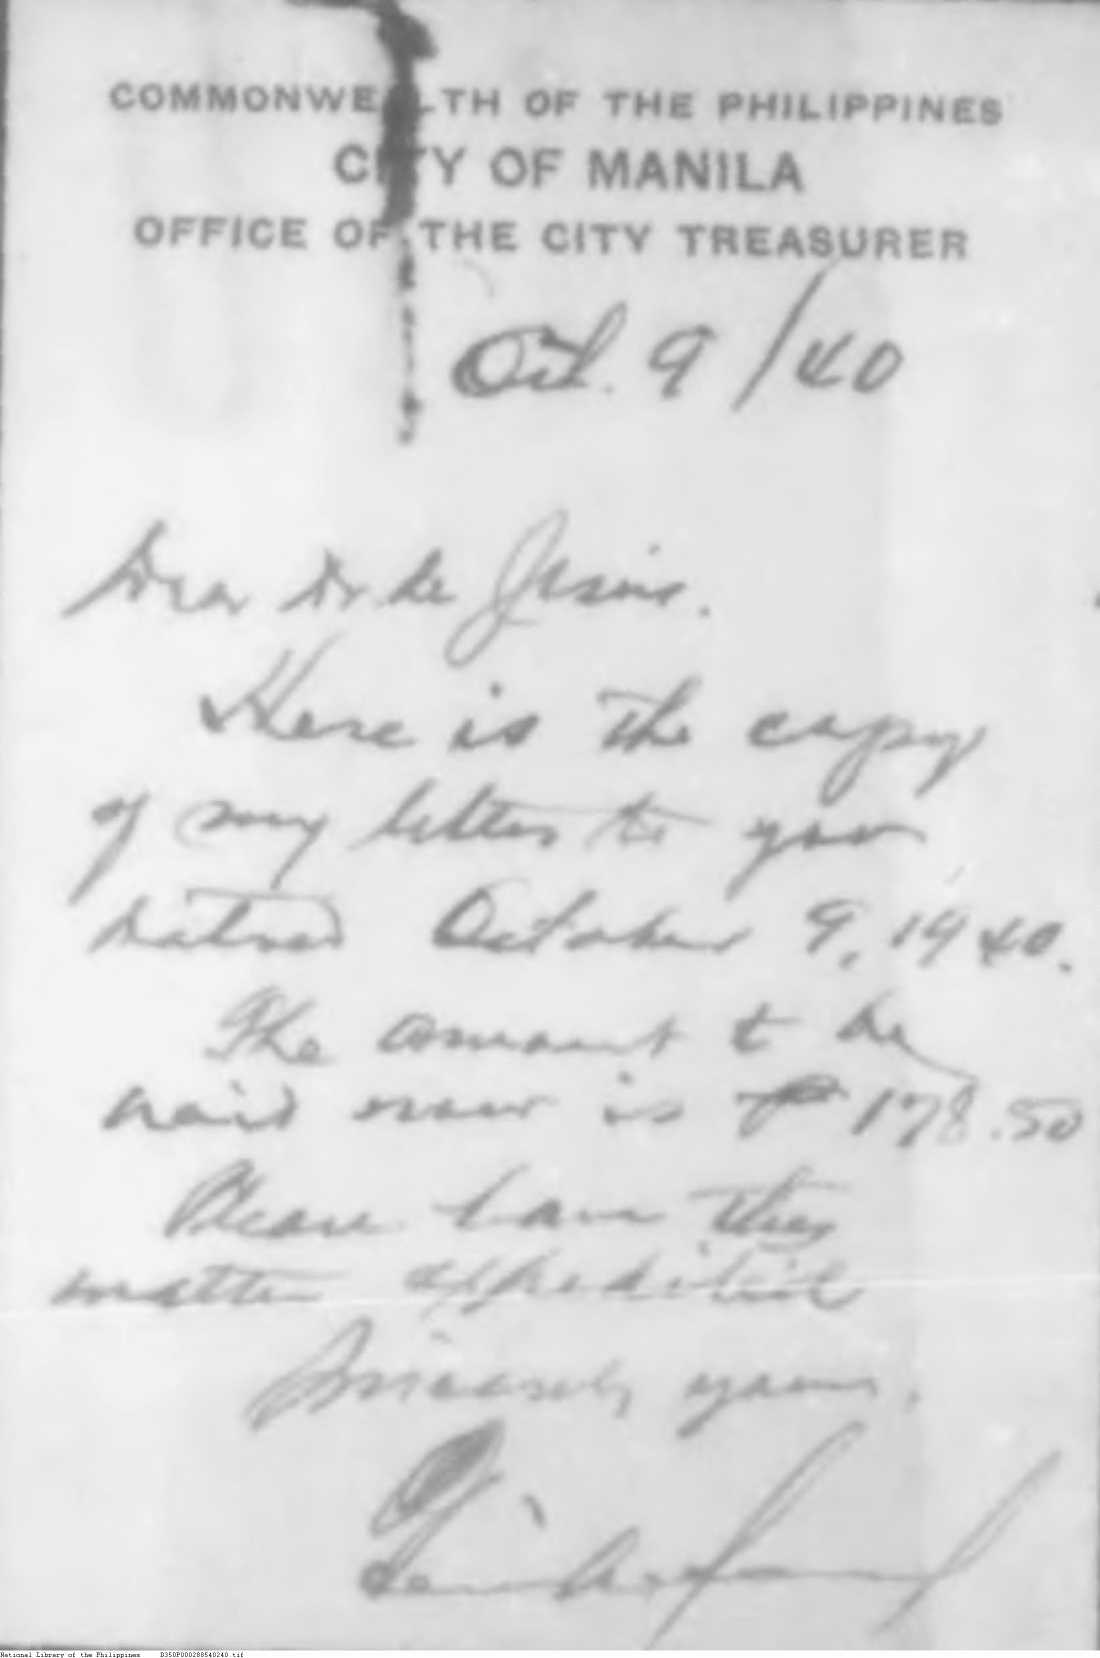 COMMONWEALTH OF THE PHILIPPINES
CITY OF MANILA
OFFICE OF THE CITY TREASURER
Oct. 9/40
Dear Dr. de Jesus.
Here is the copy
of my letter to you
dated October 9, 1940.
The amount to be
paid now is ₱178.50
Please have this
matter expedited
Sincerely yours,
National Library of the Philippines D350P000288540240.tif